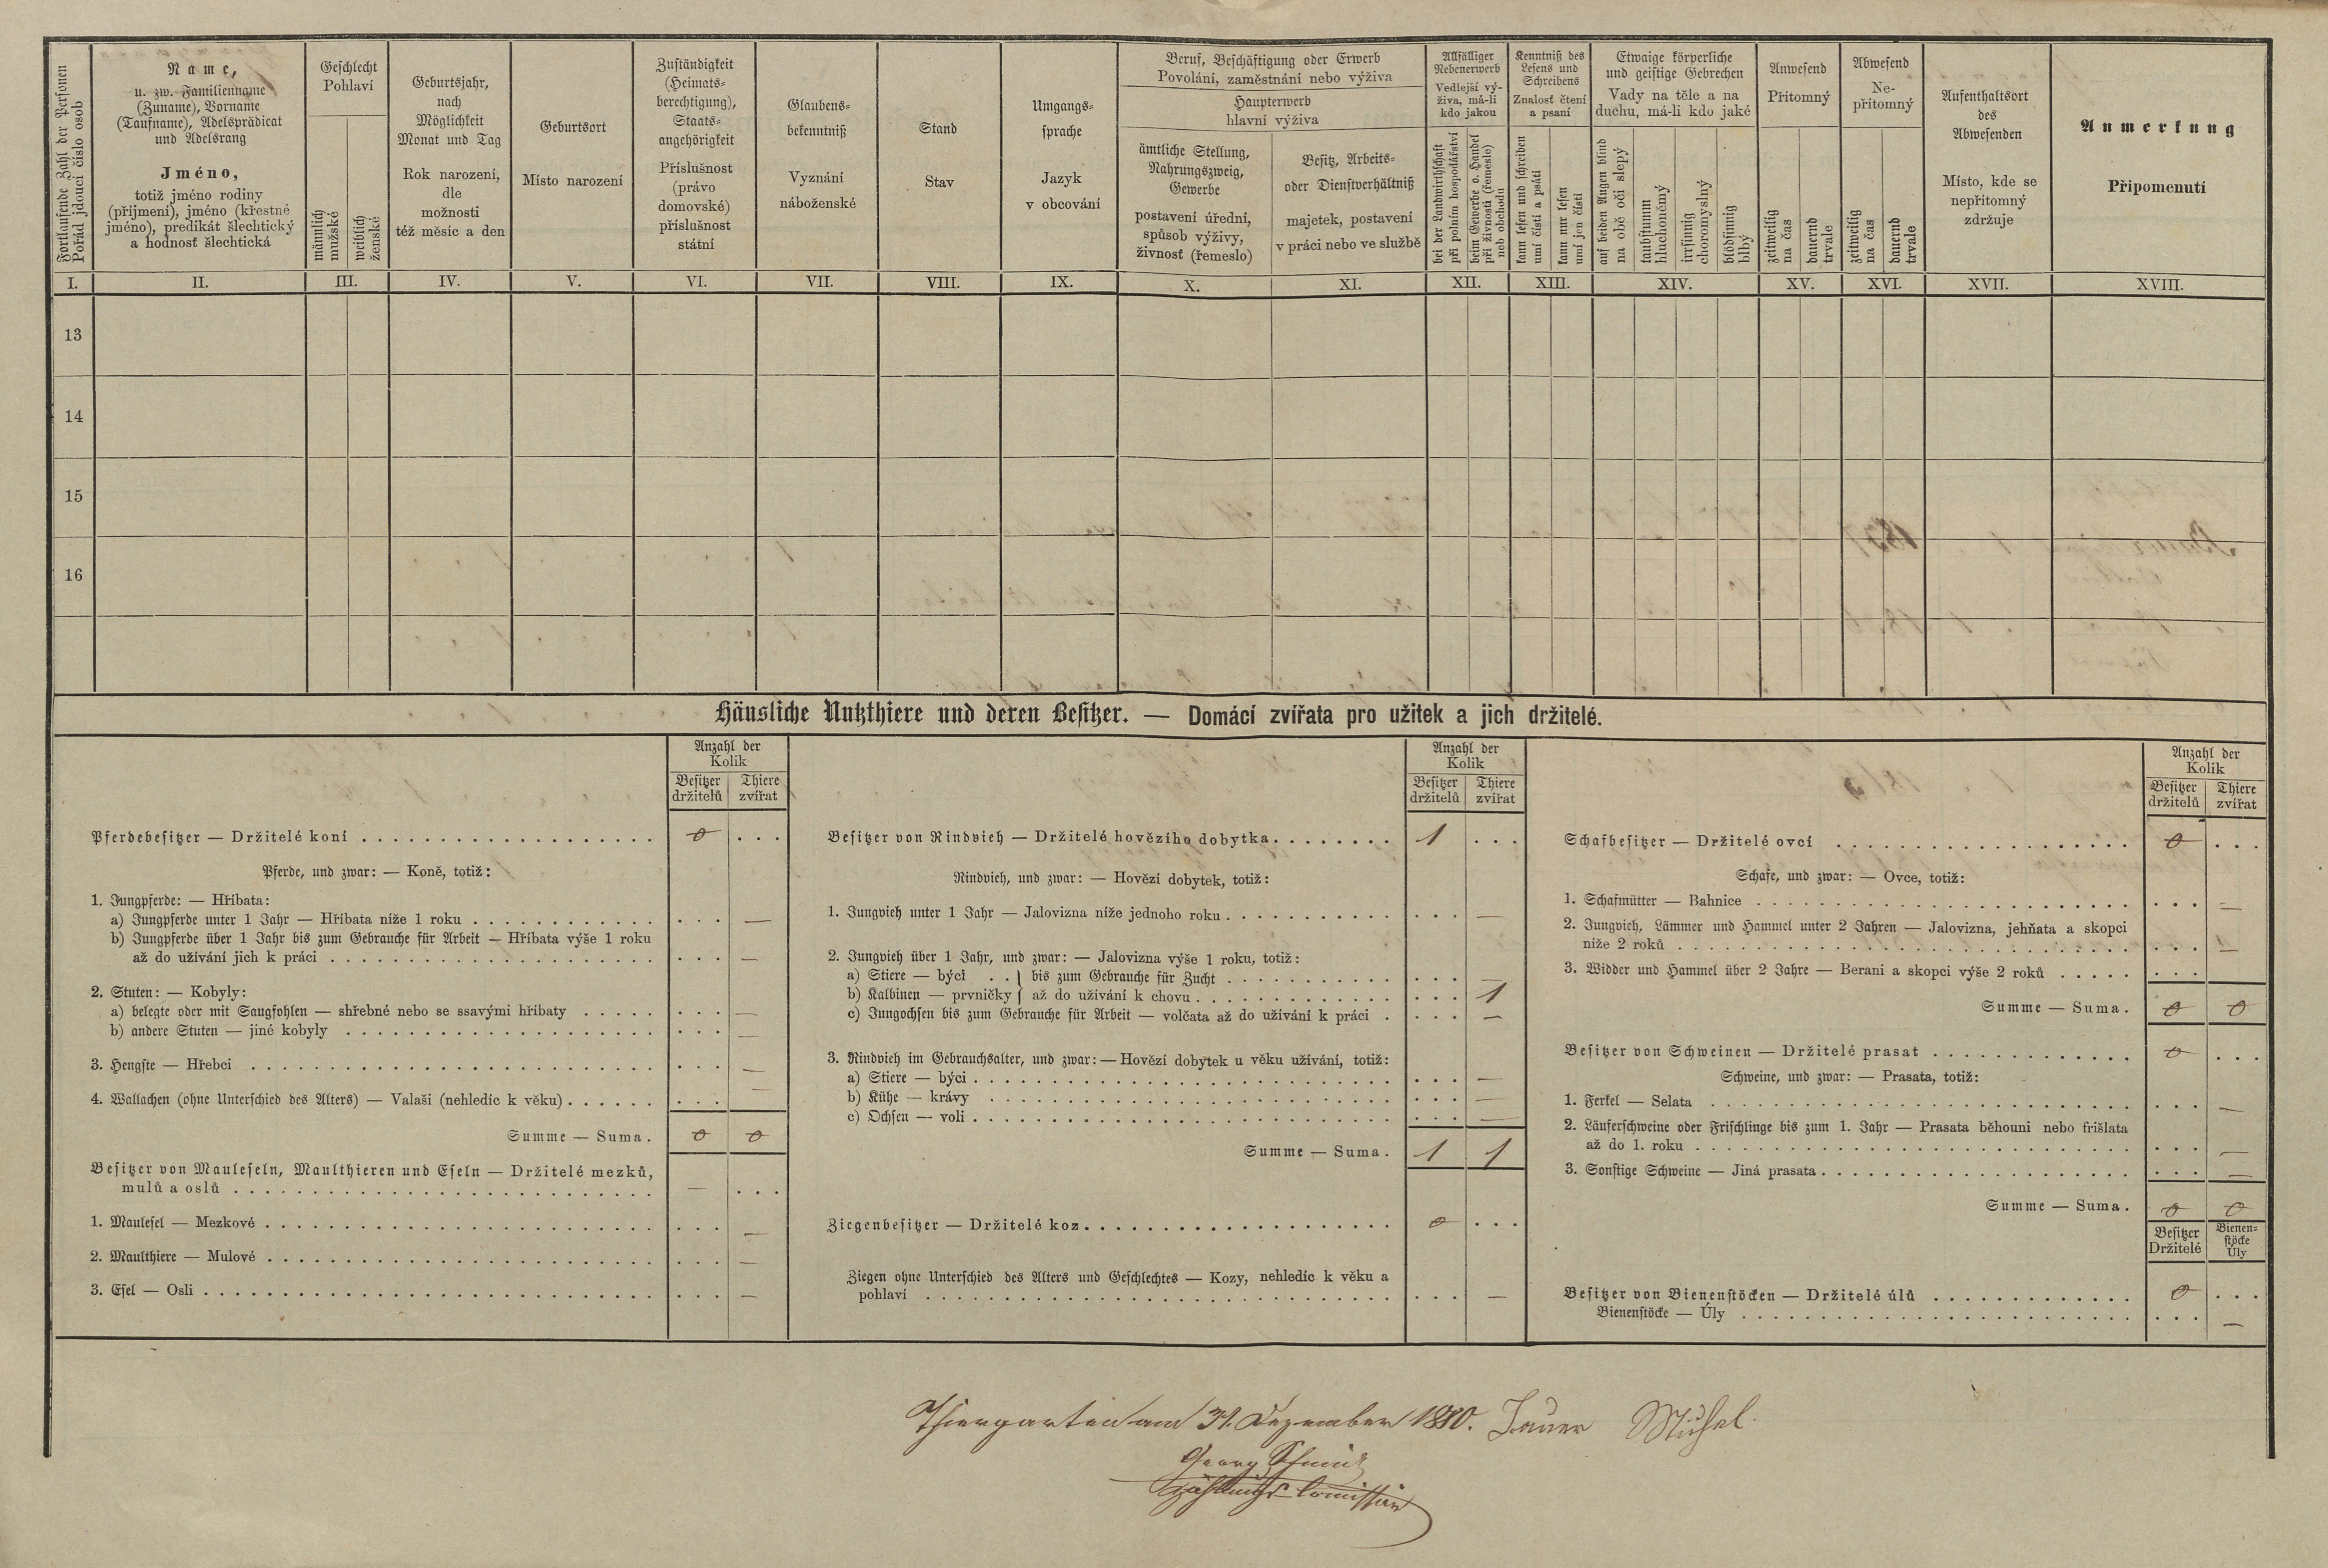 Fortlaufende Zahl der Personen
Pořád jdoucí číslo osob
Name,
u. zw. Familienname
(Zuname), Vorname
(Taufname), Adelsprädicat
und Adelsrang
Jméno,
totiž jméno rodiny
(příjmení), jméno (křestné
jméno), predikát šlechtický
a hodnosť šlechtická
Geschlecht
Pohlaví
männlich
mužské
weiblich
ženské
Geburtsjahr,
nach
Möglichkeit
Monat und Tag
Rok narození,
dle
možnosti
též měsíc a den
Geburtsort
Místo narození
Zuständigkeit
(Heimats-
berechtigung),
Staats-
angehörigkeit
Příslušnost
(právo
domovské)
příslušnost
státní
Glaubens-
bekenntniß
Vyznání
náboženské
Stand
Stav
Umgangs-
sprache
Jazyk
v obcování
Beruf, Beschäftigung oder Erwerb
Povolání, zaměstnání nebo výživa
Haupterwerb
hlavní výživa
ämtliche Stellung,
Nahrungszweig,
Gewerbe
postavení úřední,
spůsob výživy,
živnosť (řemeslo)
Besitz, Arbeits-
oder Dienstverhältniß
majetek, postavení
v práci nebo ve službě
Allfälliger
Nebenerwerb
Vedlejší vý-
živa, má-li
kdo jakou
bei der Landwirthschaft
při polním hospodářství
beim Gewerbe o. Handel
při živnosti (řemeslo)
neb obchodu
Kenntniß des
Lesens und
Schreibens
Znalosť čtení
a psaní
kann lesen und schreiben
umí čísti a psáti
kann nur lesen
umí jen čísti
Etwaige körperliche
und geistige Gebrechen
Vady na těle a na
duchu, má-li kdo jaké
auf beiden Augen blind
na obě oči slepý
taubstumm
hluchoněmý
irrsinnig
choromyslný
blödsinnig
blbý
Anwesend
Přítomný
zeitweilig
na čas
dauernd
trvale
Abwesend
Ne-
přítomný
zeitweilig
na čas
dauernd
trvale
Aufenthaltsort
des
Abwesenden
Místo, kde se
nepřítomný
zdržuje
Anmerkung
Připomenutí
I. II. III. IV. V. VI. VII. VIII. IX. X. XI. XII. XIII. XIV. XV. XVI. XVII. XVIII.
13
14
15
16
Häusliche Nutzthiere und deren Besitzer. — Domácí zvířata pro užitek a jich držitelé.
Anzahl der
Kolik
Besitzer Thiere
držitelů zvířat
Pferdebesitzer — Držitelé koní . . . 0 . . .
Pferde, und zwar: — Koně, totiž:
1. Jungpferde: — Hříbata:
a) Jungpferde unter 1 Jahr — Hříbata níže 1 roku . . . —
b) Jungpferde über 1 Jahr bis zum Gebrauche für Arbeit — Hříbata výše 1 roku
až do užívání jich k práci . . . —
2. Stuten: — Kobyly:
a) belegte oder mit Saugfohlen — shřebné nebo se ssavými hříbaty . . . —
b) andere Stuten — jiné kobyly . . . —
3. Hengste — Hřebci . . . —
4. Wallachen (ohne Unterschied des Alters) — Valaši (nehledíc k věku) . . . —
Summe — Suma. 0 0
Besitzer von Mauleseln, Maulthieren und Eseln — Držitelé mezků,
mulů a oslů . . . — . . .
1. Maulesel — Mezkové . . . —
2. Maulthiere — Mulové . . . —
3. Esel — Osli . . . —
Anzahl der
Kolik
Besitzer Thiere
držitelů zvířat
Besitzer von Rindvieh — Držitelé hovězího dobytka . . . 1 . . .
Rindvieh, und zwar: — Hovězí dobytek, totiž:
1. Jungvieh unter 1 Jahr — Jalovizna níže jednoho roku . . . —
2. Jungvieh über 1 Jahr, und zwar: — Jalovizna výše 1 roku, totiž:
a) Stiere — býci . . } bis zum Gebrauche für Zucht . . . —
b) Kalbinen — prvničky } až do užívání k chovu . . . 1
c) Jungochsen bis zum Gebrauche für Arbeit — volčata až do užívání k práci . . . —
3. Rindvieh im Gebrauchsalter, und zwar: — Hovězí dobytek u věku užívání, totiž:
a) Stiere — býci . . . —
b) Kühe — krávy . . . —
c) Ochsen — voli . . . —
Summe — Suma. 1 1
Ziegenbesitzer — Držitelé koz . . . 0 . . .
Ziegen ohne Unterschied des Alters und Geschlechtes — Kozy, nehledíc k věku a
pohlaví . . . —
Anzahl der
Kolik
Besitzer Thiere
držitelů zvířat
Schafbesitzer — Držitelé ovcí . . . 0 . . .
Schafe, und zwar: — Ovce, totiž:
1. Schafmütter — Bahnice . . . —
2. Jungvieh, Lämmer und Hammel unter 2 Jahren — Jalovizna, jehňata a skopci
níže 2 roků . . . —
3. Widder und Hammel über 2 Jahre — Berani a skopci výše 2 roků . . .
Summe — Suma. 0 0
Besitzer von Schweinen — Držitelé prasat . . . 0 . . .
Schweine, und zwar: — Prasata, totiž:
1. Ferkel — Selata . . . —
2. Läuferschweine oder Frischlinge bis zum 1. Jahr — Prasata běhouni nebo frišlata
až do 1. roku . . . —
3. Sonstige Schweine — Jiná prasata . . . —
Summe — Suma. 0 0
Besitzer Bienen-
stöcke
Držitelé Úly
Besitzer von Bienenstöcken — Držitelé úlů . . . 0 . . .
Bienenstöcke — Úly . . . —
Thiergarten am 31. Dezember 1880.
Georg
Zählungs-Comissär